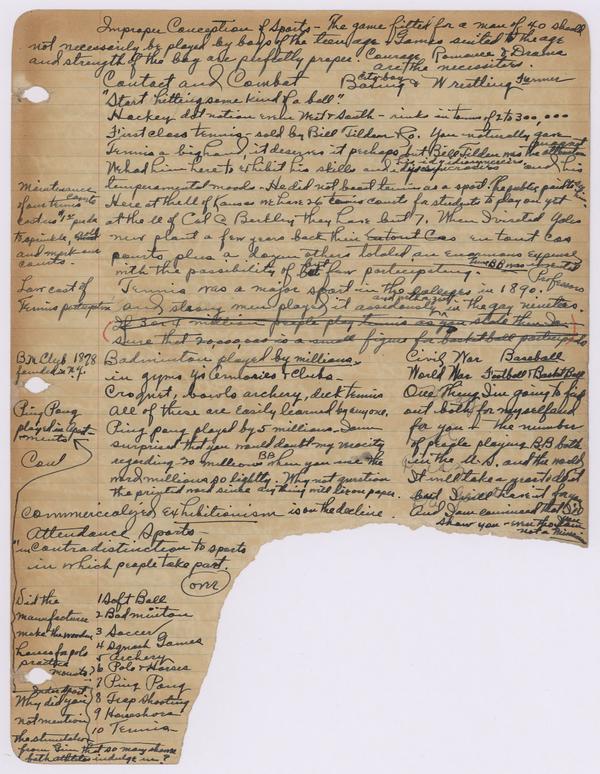 Improper Conception of Sports - The game fitted for a man of 40 should
not necessarily be played by boys of the teen age & Games suited to the age
and strength of the boy are perfectly proper. Courage, Romance & Drama
are the necessities.
Contact and Combat
City boy Farmer
Boxing & Wrestling
"Start hitting some kind of a ball"
Hockey does not even West & South - rinks in terms of 2 to 300,000
First class tennis - sold by Bill Tilden Co. You naturally gave
Tennis a big hand, it deserves it perhaps but Bill Tilden was the
We had him here to exhibit his skills and idiosyncrasies and his
temperamental moods - He did not boost tennis as a sport. The public
Here at the U of Kansas we have 26 tennis courts for students to play on yet
at the U of Cal @ Berkley they have but 7. When I visited Yales
new plant a few years back their en tout cas
courts plus a dozen others totaled an enormous expense
with the possibility of but few participating.
Tennis was a major sport in the colleges in 1890. Professors
and strong men played it assiduously in the gay nineties.
If 3 or 4 million people play tennis as you stated then I'm
sure that 20,000,000 is a small figure for basketball participants
Maintenance
of our tennis courts
cost us
to sprinkle,
and mark our
courts.
Low cost of
Tennis participation
B.M. Club 1878
founded in N.Y.
Badminton played by millions
in gyms Y's armories & clubs -
Croquet, bowls archery, deck tennis
All of these are easily learned by anyone.
Ping pong played by 5 millions. I am
surprised that you would doubt my veracity
regarding 20 millions BB when you use the
word millions so lightly. Why not question
the printed word since anything will lie on paper.
Ping Pong
played in apart-
ments
Civil War Baseball
World War Football & Basket Ball
One thing I'm going to find
out both for myself and
for you - the number
of people playing B.B. both
in the U.S. and the world
It will take a great deal
but I will have it for you
And I am convinced that I'll
show you - even though you
not a Missourian
Commercialized Exhibitionism is on the decline.
Attendance Sports
"in contradistinction to sports
in which people take part.
over
Did the
manufacturer
make the wooden
horses for polo
practice
mounts?
Why did you
not mention
the stimulation
from Gym that so many
both athletes indulge in?
1 Soft Ball
2 Badminton
3 Soccer
4 Squash Games
5 Archery
6 Polo & Horses
7 Ping Pong
8 Trap Shooting
9 Horseshoes
10 Tennis